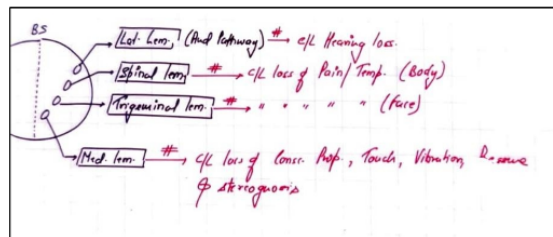 BS
Lat. Lem. (Aud Pathway) # c/L Hearing loss.
Spinal lem # c/L loss of Pain/Temp. (Body)
Trigeminal lem. # " " " " " (face)
Med. lem # c/L loss of Consc. Prop., Touch, Vibration,
& stereognosis